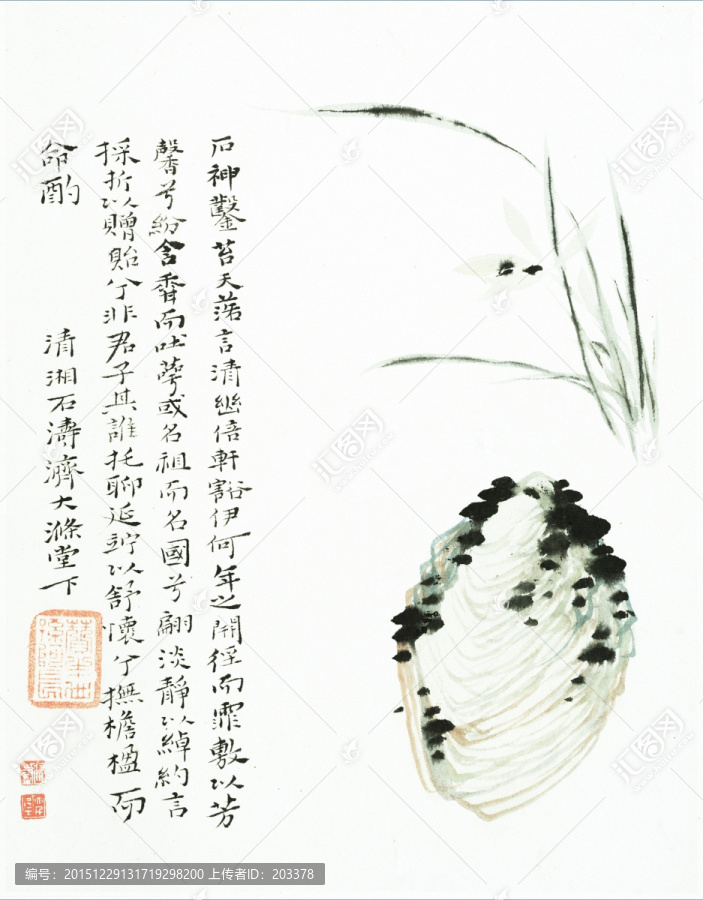 石神鑿苔天蕩言清幽倍軒豁伊何年之開徑而霏敷以芳
馨兮紛含香而吐萼或名祖而名國兮翩淡靜以綽約言
採折以贈貽兮非君子其誰托聊延竚以舒懷兮撫檐楹而
命酌
清湘石濤濟大滌堂下
贊之十世孫阿長
汇图网
编号：20151229131719298200 上传者ID：203378